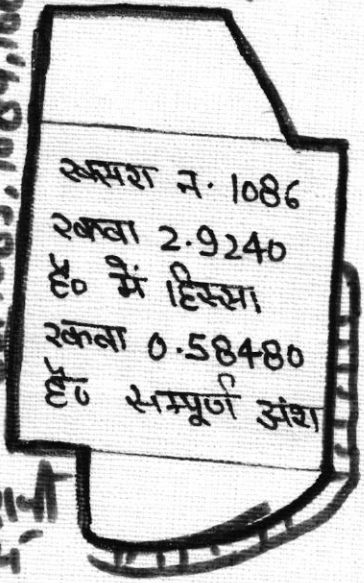 खसरा न. 1086
रकवा 2.9240
है० में हिस्सा
रकवा 0.58480
है० सम्पूर्ण अंश